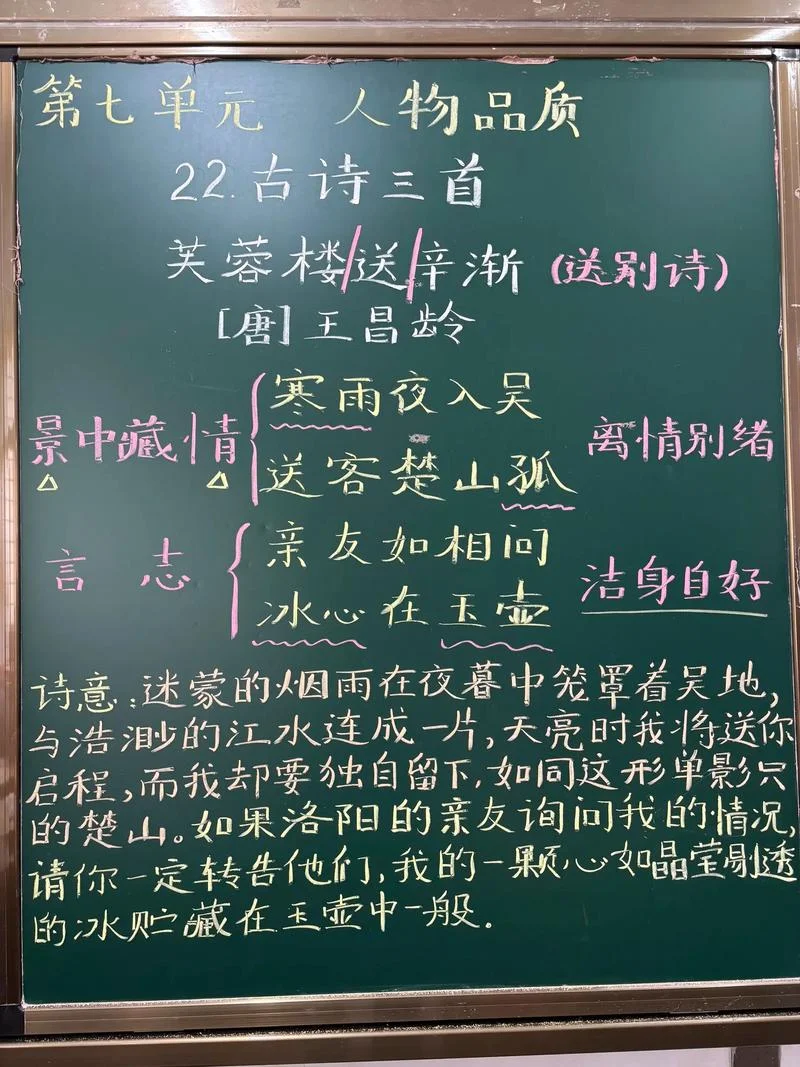 第七单元 人物品质
22.古诗三首
芙蓉楼/送/辛渐(送别诗)
[唐]王昌龄
寒雨夜入吴
景中藏情
离情别绪
送客楚山孤
亲友如相问
言志
洁身自好
冰心在玉壶
诗意:迷蒙的烟雨在夜暮中笼罩着吴地,
与浩渺的江水连成一片,天亮时我将送你
启程,而我却要独自留下,如同这形单影只
的楚山。如果洛阳的亲友询问我的情况,
请你一定转告他们,我的一颗心如晶莹剔透
的冰贮藏在玉壶中一般.